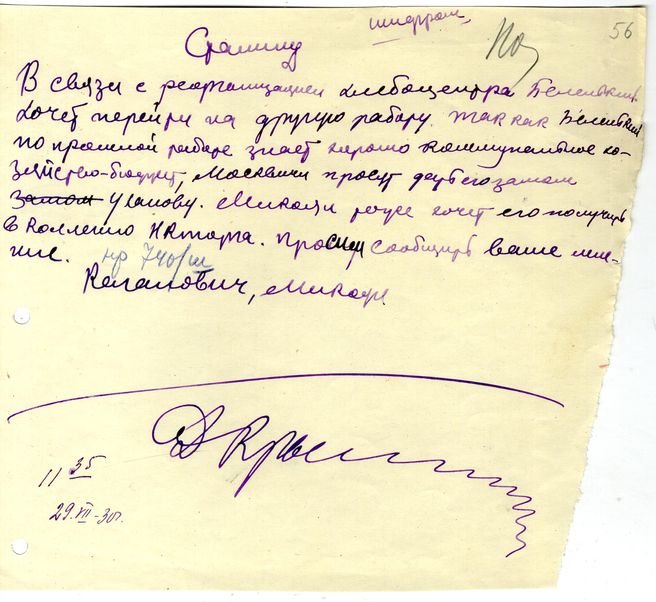 шифром,
56
Сталину
В связи с реорганизацией хлебоцентра Беленький
хочет перейти на другую работу. Так как Беленький
по прошлой работе знает хорошо коммунальное хо-
зяйство-бюджет, Москвичи просят дать его замом
замом Уханову. Микоян тоже хочет его получить
в коллегию НКторга. Просим сообщить ваше мне-
ние. нр 740/ш
Каганович, Микоян.
11 35
29.VII-30г.